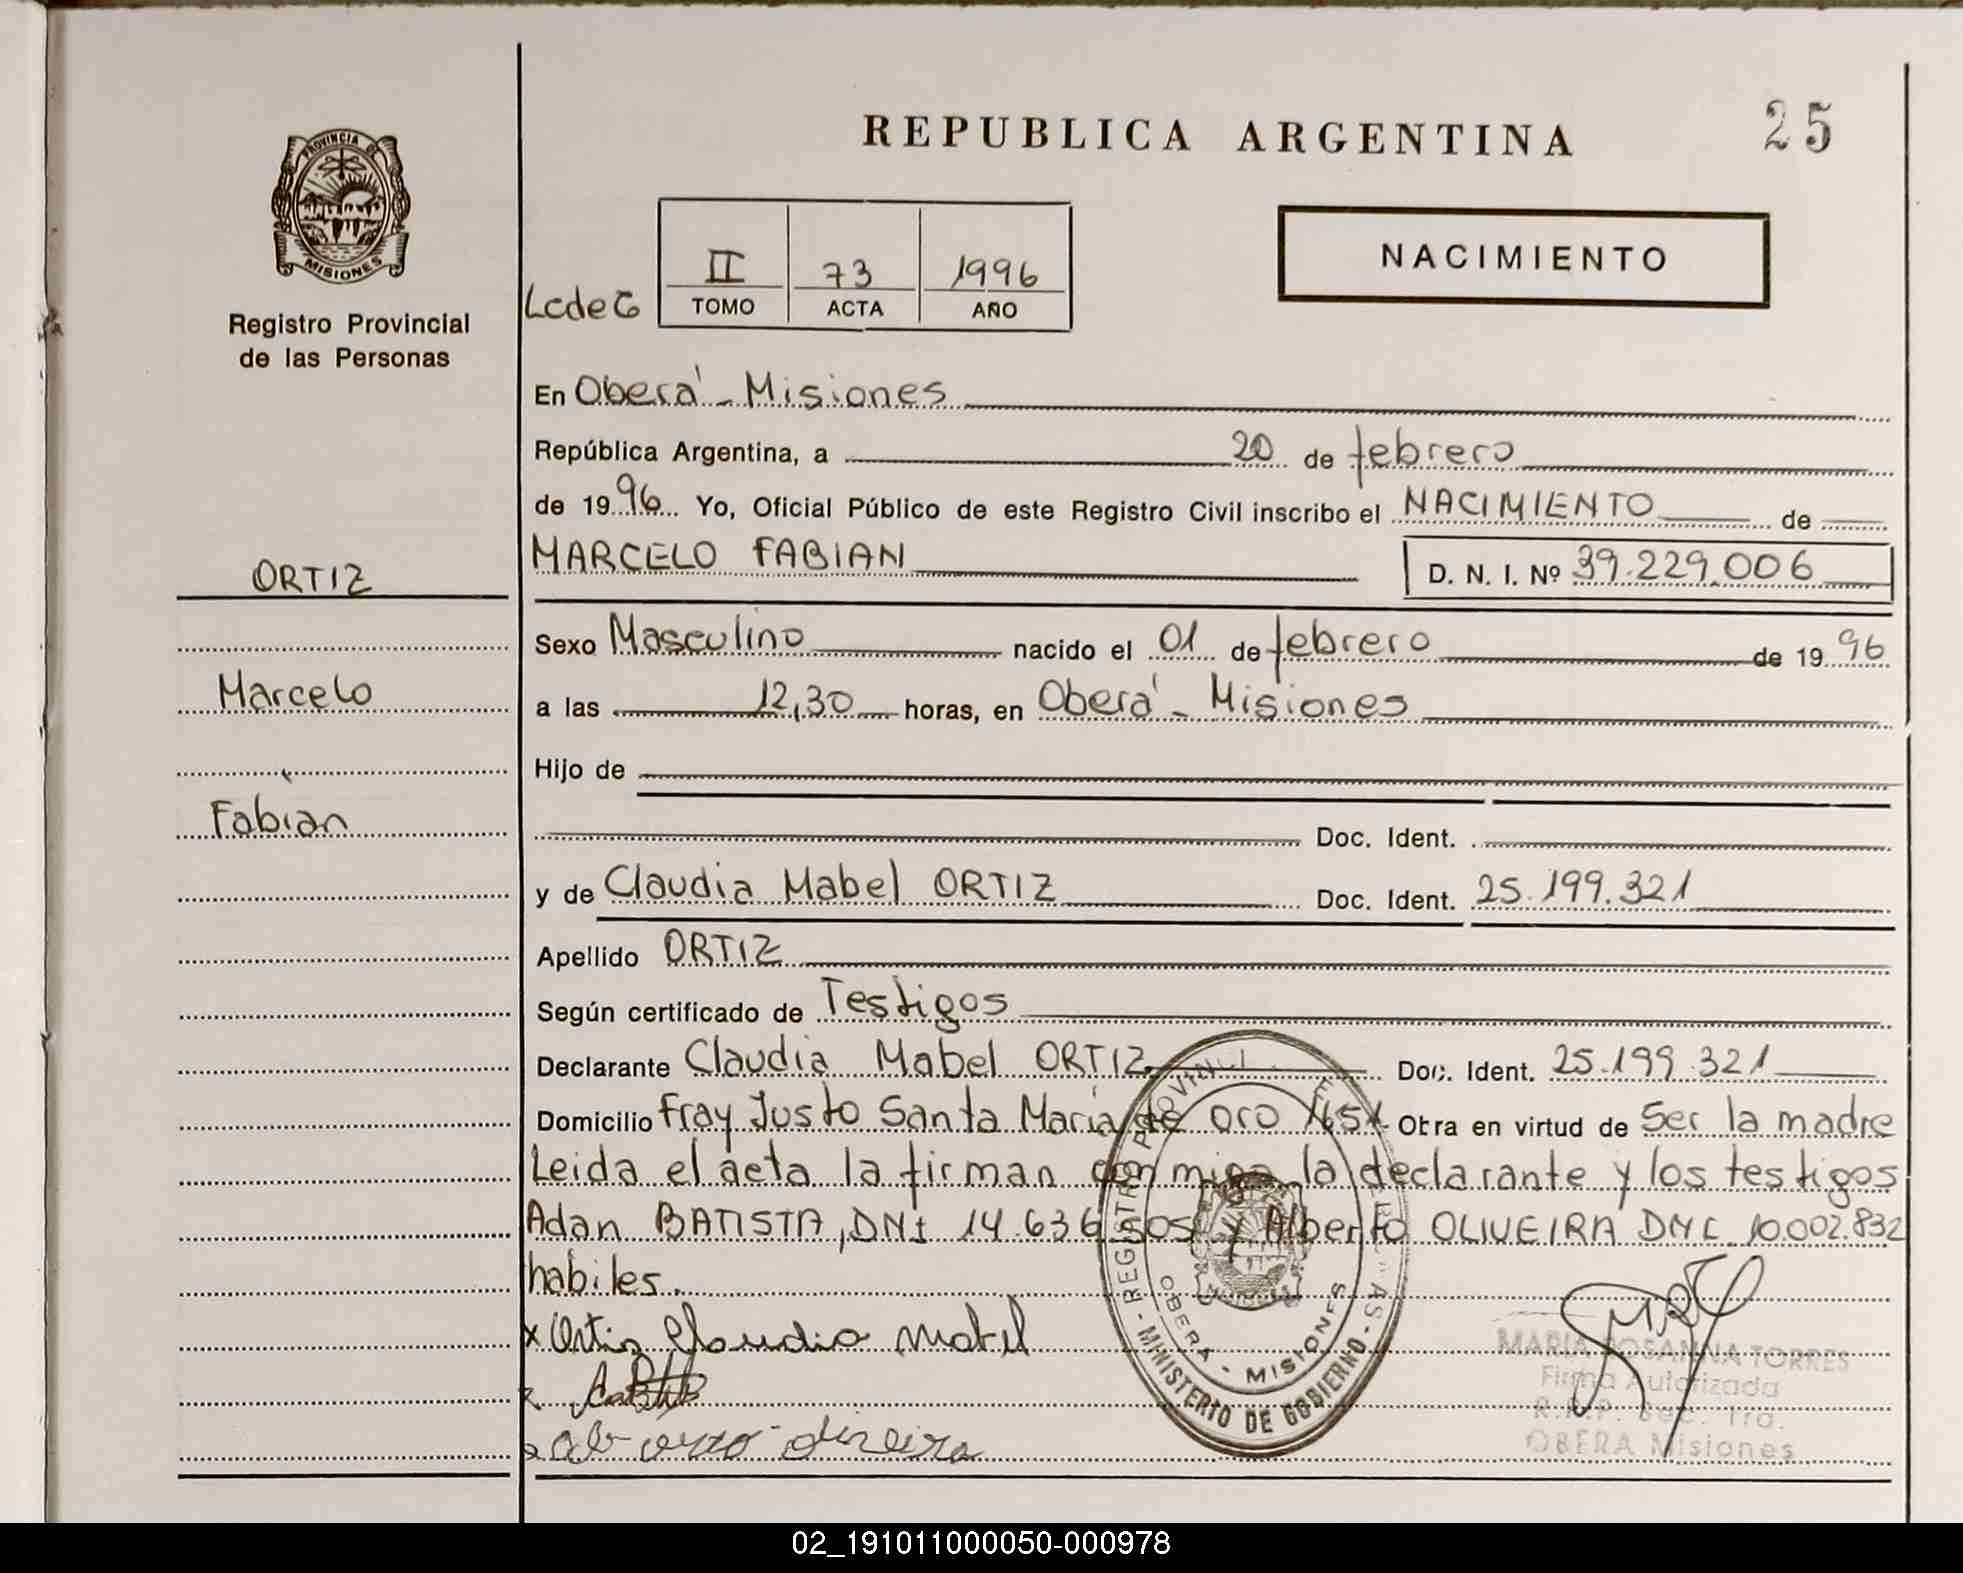 PROVINCIA DE
MISIONES
Registro Provincial
de las Personas
ORTIZ
Marcelo
Fabian
REPUBLICA ARGENTINA
25
LcdeG
II 73 1996
TOMO ACTA AÑO
NACIMIENTO
En Oberá - Misiones
República Argentina, a 20 de febrero
de 1996 Yo, Oficial Público de este Registro Civil inscribo el NACIMIENTO de
MARCELO FABIAN D. N. I. Nº 39.229.006
Sexo Masculino nacido el 01 de febrero de 1996
a las 12,30 horas, en Oberá - Misiones
Hijo de
Doc. Ident.
y de Claudia Mabel ORTIZ Doc. Ident. 25.199.321
Apellido ORTIZ
Según certificado de Testigos
Declarante Claudia Mabel ORTIZ Doc. Ident. 25.199.321
Domicilio Fray Justo Santa María de oro Obra en virtud de Ser la madre
Leida el acta la firman la declarante y los testigos
Adan BATISTA, DNI 14.636 y Alberto OLIVEIRA DNI 10.002.832
habiles.
x Ortiz Claudia Mabel
REGISTRO PROVINCI
OBERA - MISIONES
MINISTERIO DE GOBIERNO
MARIA ROSANNA TORRES
Firma Autorizada
OBERA Misiones
02_191011000050-000978